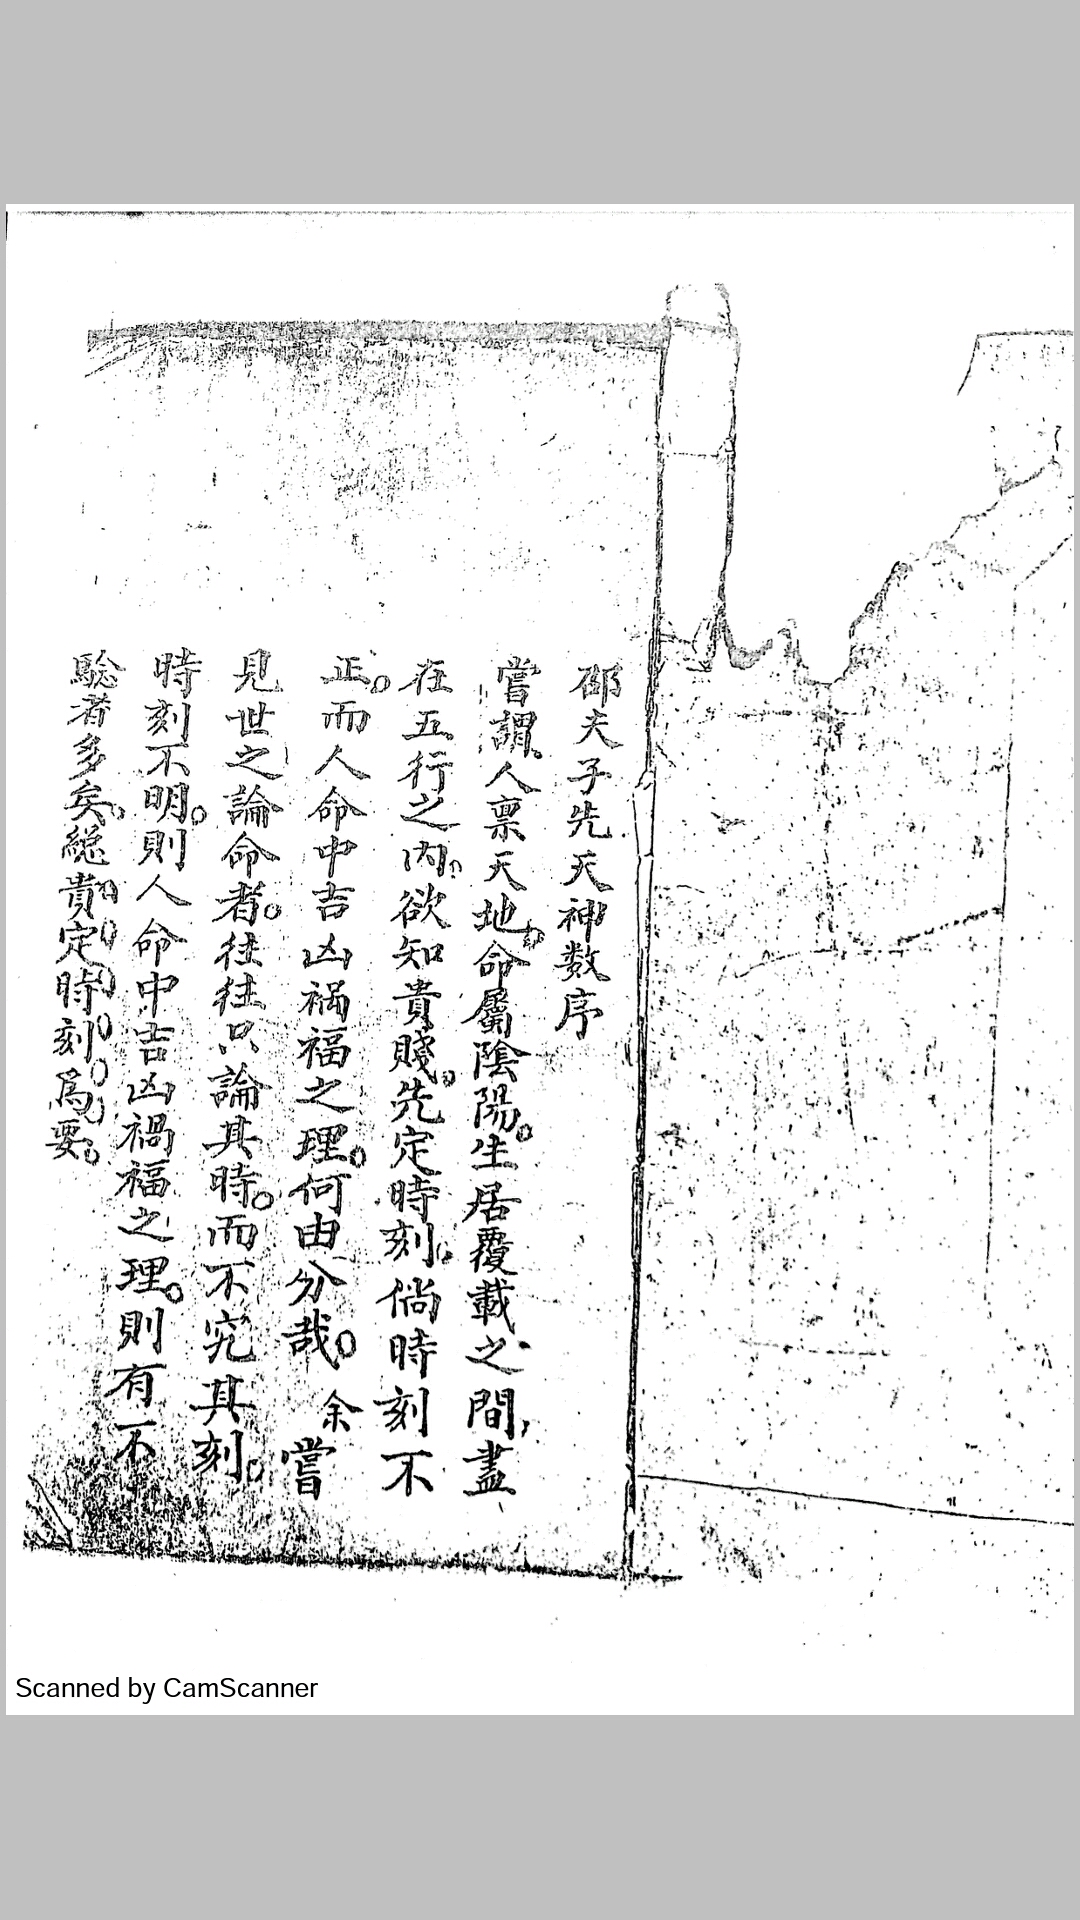 邵夫子先天神数序
嘗謂人禀天地。命屬陰陽。生居覆載之間，盡
在五行之内。欲知貴賤。先定時刻。倘時刻不
正。而人命中吉凶禍福之理。何由分哉。余嘗
見世之論命者。往往只論其時。而不究其刻。
時刻不明。則人命中吉凶禍福之理。則有不
驗者多矣。總貴定時刻爲要。
Scanned by CamScanner